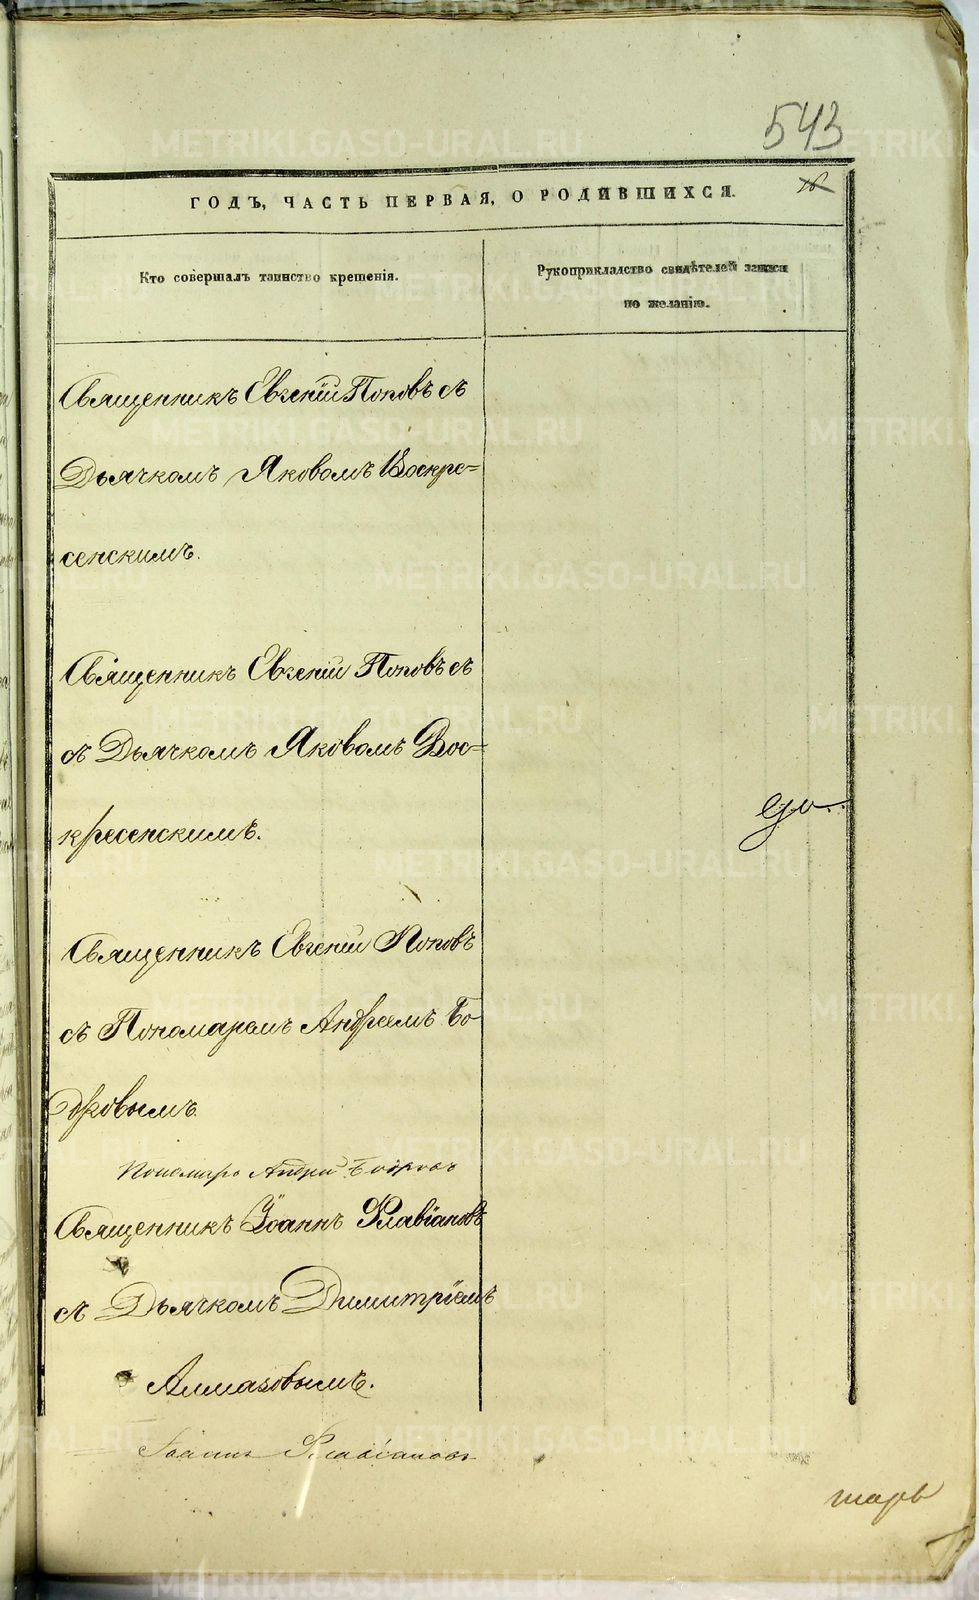 543
ГОДЪ, ЧАСТЬ ПЕРВАЯ, О РОДИВШИХСЯ.
Кто совершалъ таинство крещенія.
Рукоприкладство свидѣтелей записи
по желанію.
Священникъ Евгеній Поповъ съ
Дьячкомъ Яковомъ Воскре=
сенскимъ.
Священникъ Евгеній Поповъ съ
съ Дьячкомъ Яковомъ Вос=
кресенскимъ.
Священникъ Евгеній Поповъ
съ Пономаремъ Андреемъ Бо-
дровымъ
Пономарь Андрей Бодровъ
Священникъ Іоаннъ Флавіановъ
съ Дьячкомъ Димитріемъ
Алмазовымъ.
Іоаннъ Флавіановъ
тарь
METRIKI.GASO-URAL.RU